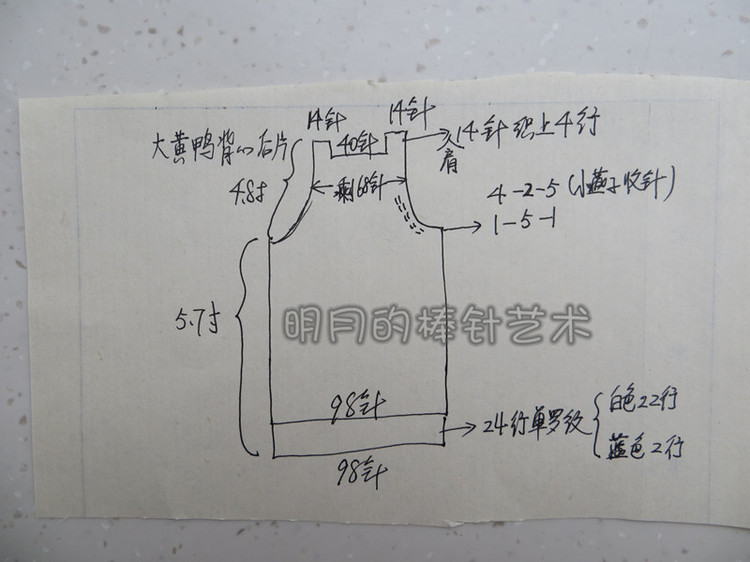 14针
14针
大黄鸭背心后片
40针
14针织上4行
肩
4.8寸
剩68针
4-2-5(小燕子收针)
1-5-1
5.7寸
明月的棒针艺术
98针
24行单罗纹
白色22行
蓝色2行
98针